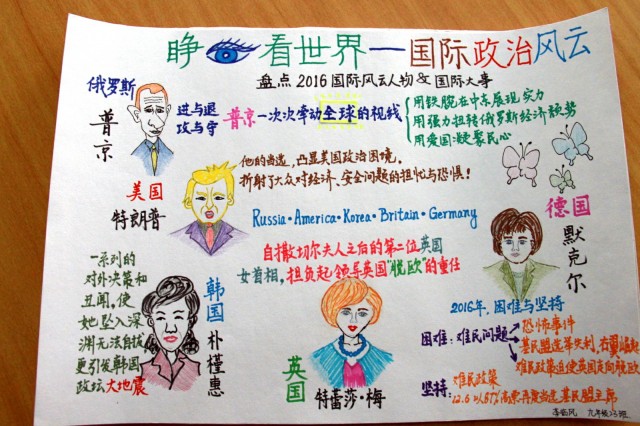 睁 看世界—国际政治风云
盘点2016国际风云人物&国际大事
俄罗斯
普京
进与退
攻与守
普京一次次牵动全球的视线
用铁腕在中东展现实力
用强力扭转俄罗斯经济颓势
用爱国凝聚民心
美国
特朗普
他的当选,凸显美国政治困境。
折射了大众对经济、安全问题的担忧与恐惧!
Russia·America·Korea·Britain·Germany
德国
默克尔
自撒切尔夫人之后的第二位英国
女首相,担负起领导英国"脱欧"的重任
一系列的
对外决策和
丑闻,使
她坠入深
渊无法自拔
更引发韩国
政坛大地震
韩国
朴槿惠
英国
特蕾莎·梅
2016年,困难与坚持
困难:难民问题
恐怖事件
基民盟选举失利,右翼崛起
难民政策迫使英国走向脱欧
坚持:
难民政策
12.6以89%高票再度当选基民盟主席
九年级23班